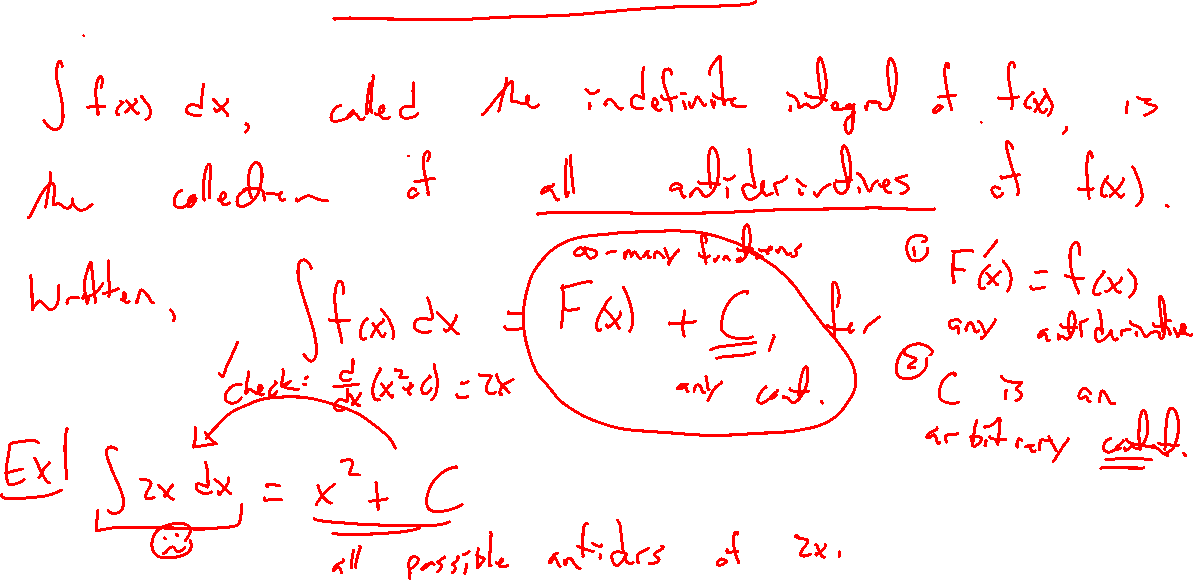 ∫ f(x) dx, called the indefinite integral of f(x), is
the collection of all antiderivatives of f(x).
∞-many functions
Written, ∫ f(x) dx = F(x) + C, for
any const.
① F'(x) = f(x)
any antiderivative
② C is an
arbitrary constant.
✓ check: d/dx (x² + C) = 2x
Ex1 ∫ 2x dx = x² + C
all possible antiders of 2x.